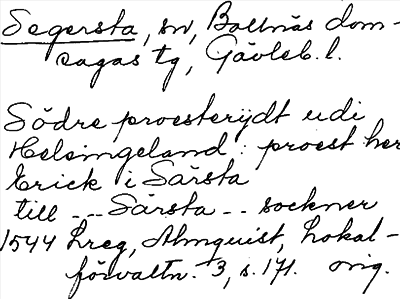 Segersta, sn, Bollnäs dom-
sagas tg, Gävleb. l.
Södre proesterijdt udi
Helsingeland: proest her
Erick i Särsta
till --- Särsta -- sockner
1544 Lreg, Almquist, Lokal-
förvaltn. 3, s. 171. orig.